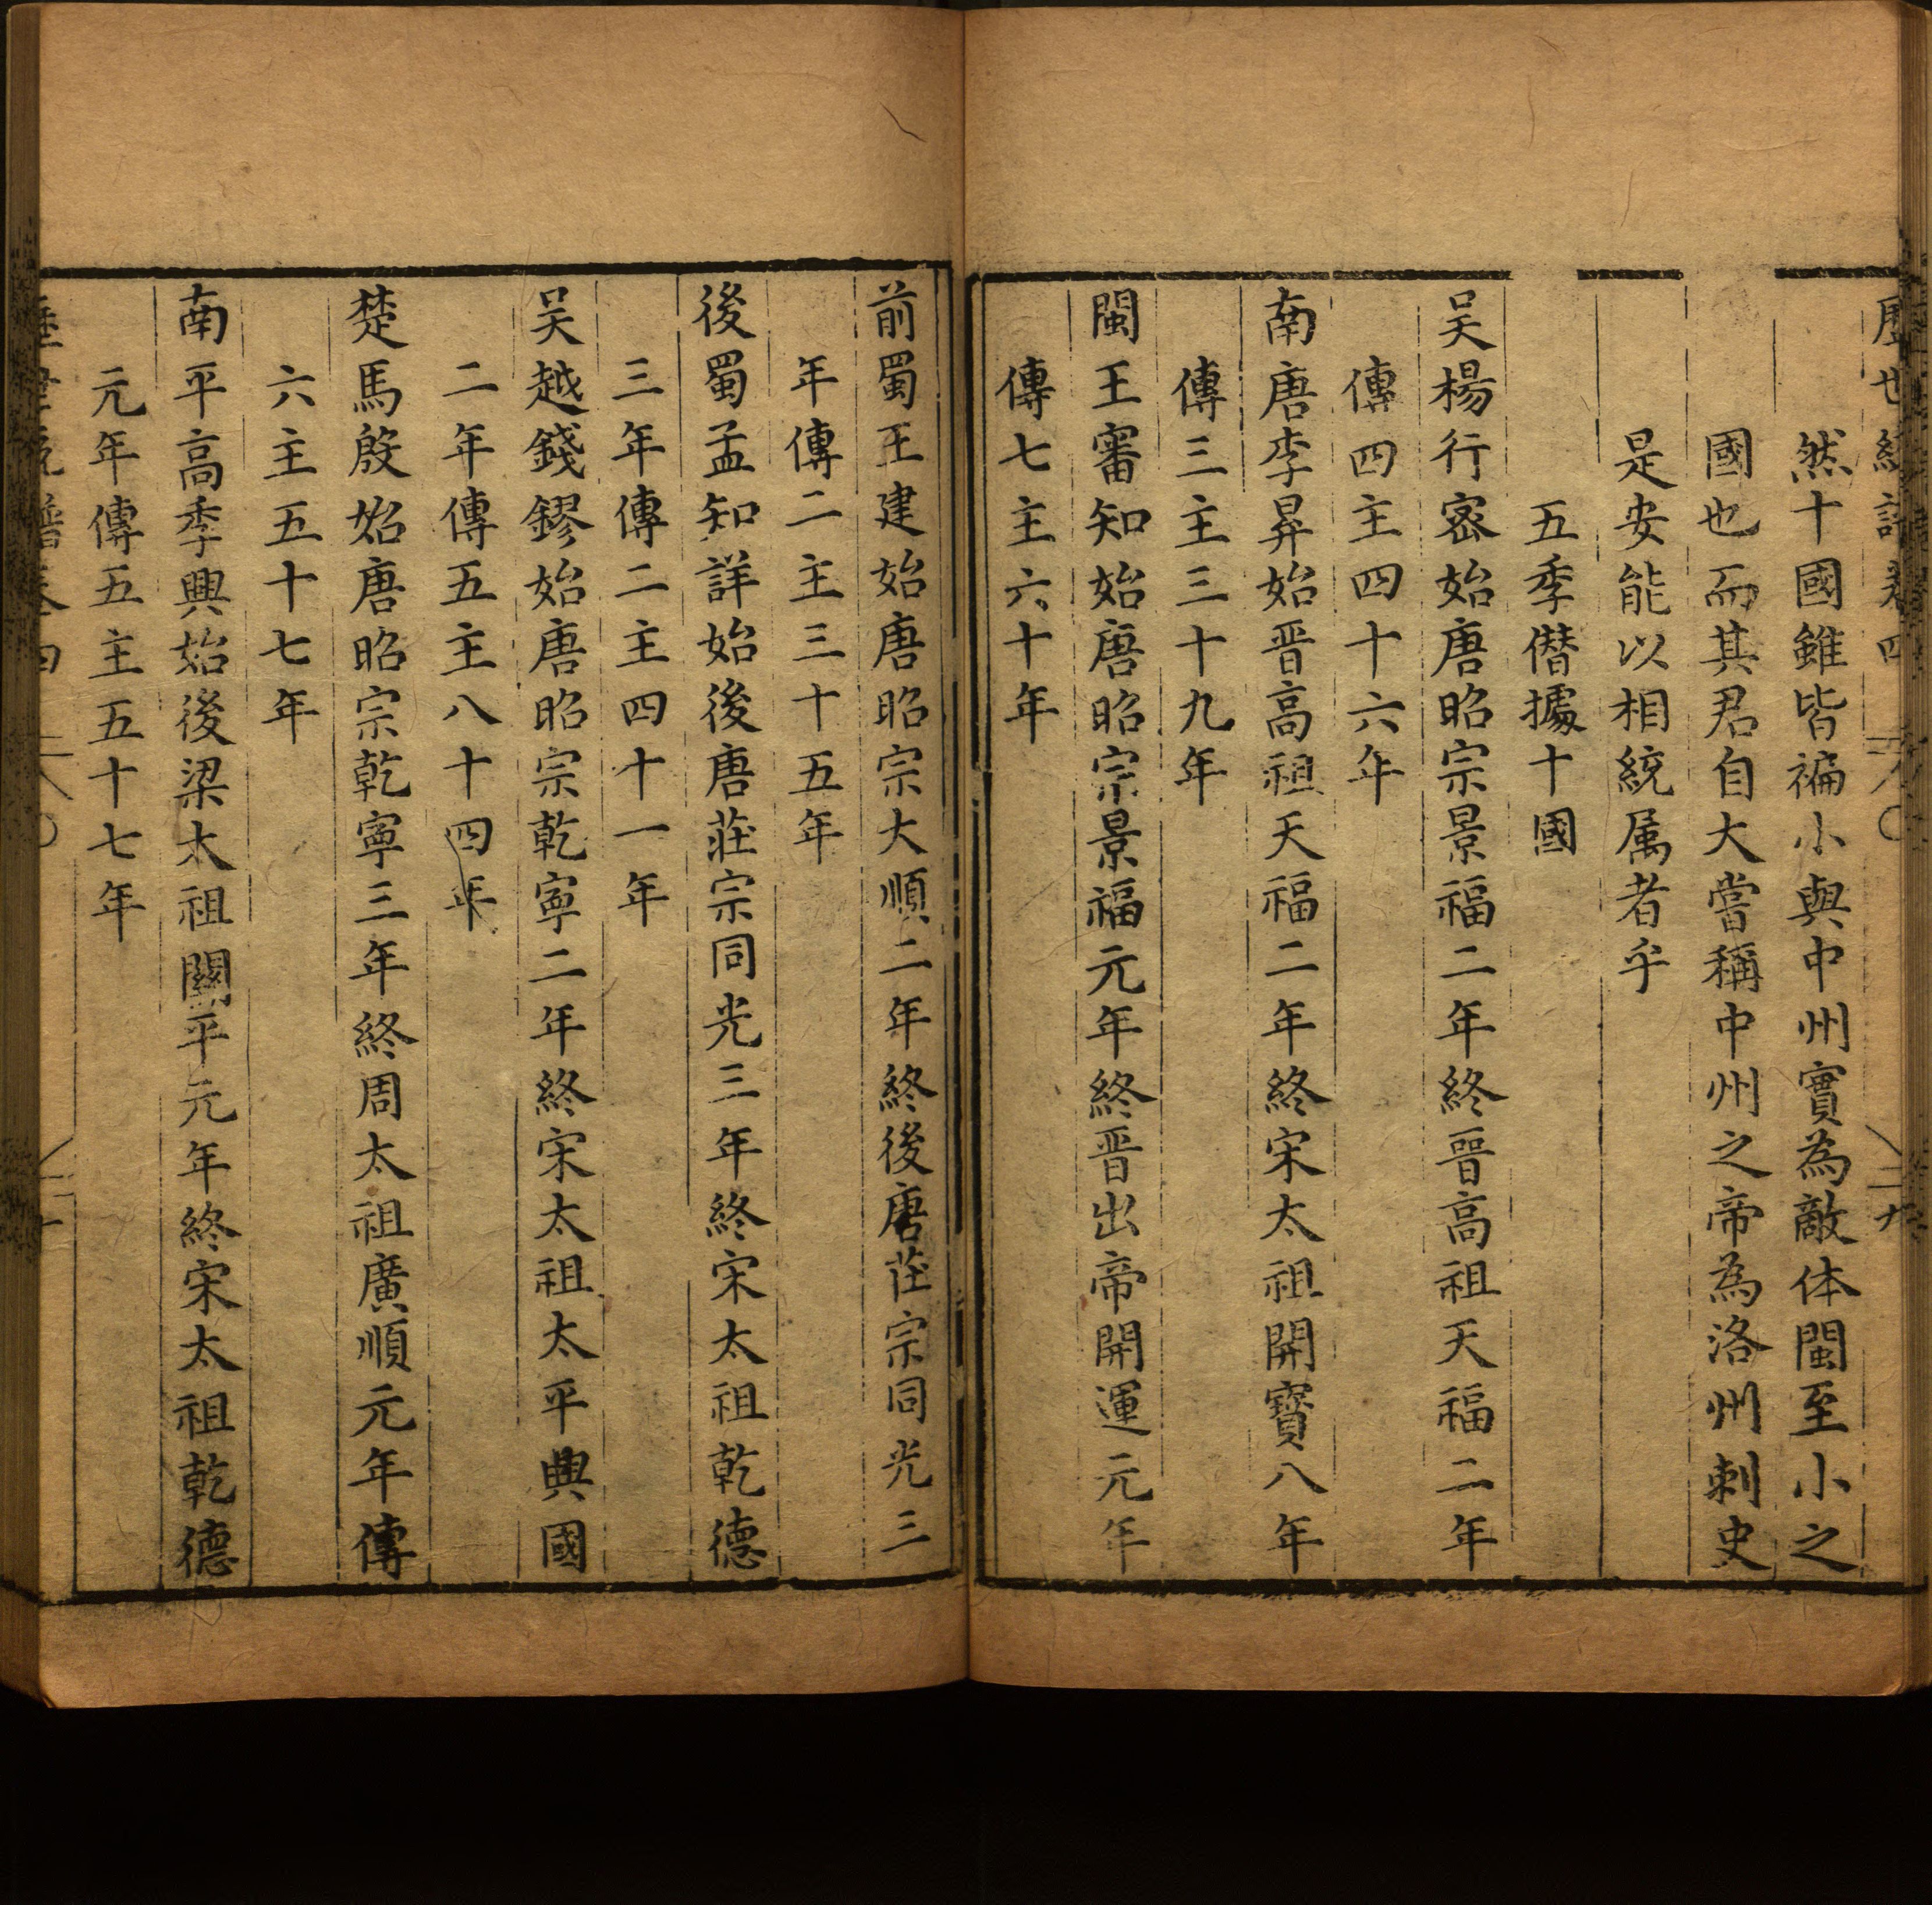 然十國雖皆褊小與中州實為敵体閩至小之
國也而其君自大嘗稱中州之帝為洛州刺史
是安能以相統属者乎
五季僭據十國
吴楊行宻始唐昭宗景福二年終晋高祖天福二年
傳四主四十六年
南唐李昇始晋高祖天福二年終宋太祖開寳八年
傳三主三十九年
閩王審知始唐昭宗景福元年終晋出帝開運元年
傳七主六十年
前蜀王建始唐昭宗大順二年終後唐莊宗同光三
年傳二主三十五年
後蜀孟知詳始後唐莊宗同光三年終宋太祖乾德
三年傳二主四十一年
吴越錢鏐始唐昭宗乾寧二年終宋太祖太平興國
二年傳五主八十四年
楚馬殷始唐昭宗乾寧三年終周太祖廣順元年傳
六主五十七年
南平高季興始後梁太祖開平元年終宋太祖乾德
元年傳五主五十七年